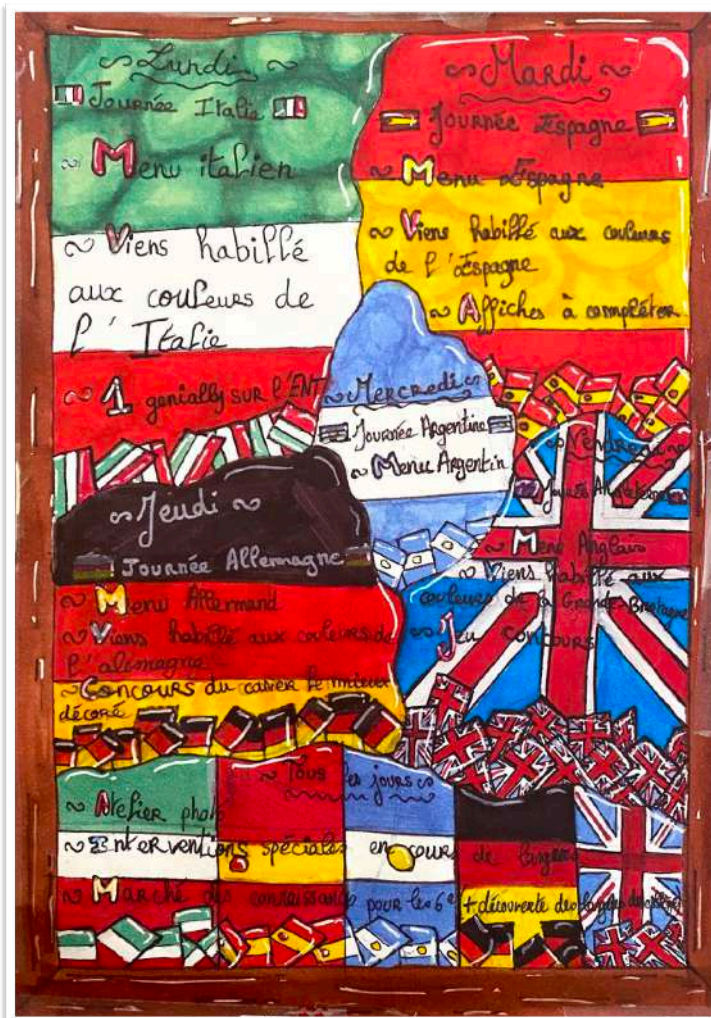 Lundi
Journée Italie
Menu italien
Viens habillé
aux couleurs de
l'Italie
1 genially sur l'ENT
Mardi
Journée Espagne
Menu Espagne
Viens habillé aux couleurs
de l'Espagne
Affiches à compléter
Mercredi
Journée Argentine
Menu Argentin
Jeudi
Journée Allemagne
Menu Allemand
Viens habillé aux couleurs de
l'alemagne
Concours du casier le mieux
décoré
Vendredi
Journée Angleterre
Menu Anglais
Viens habillé aux
couleurs de la Grande-Bretagne
Jeu concours
Tous les jours
Atelier photo
Interventions spéciales en cours de langues
Marché des connaissances pour les 6e + découverte des langues